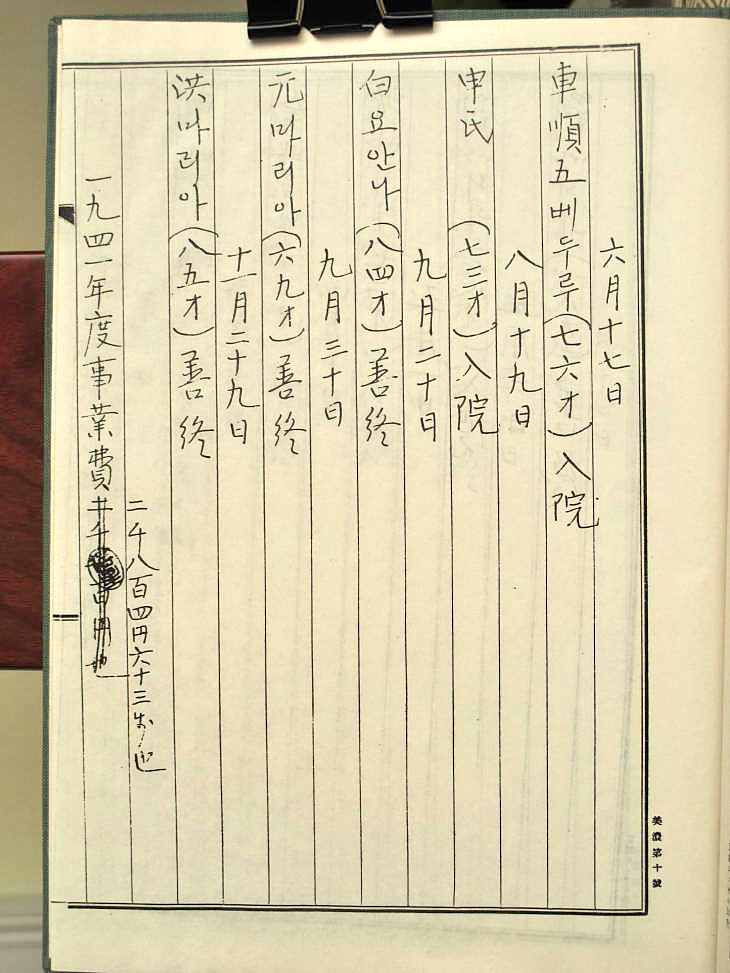 六月十七日
車順五베두루(七六才)入院
八月十九日
申氏(七三才)入院
九月二十日
白요안나(八四才)善終
九月三十日
元마리아(六九才)善終
十一月二十九日
洪마리아(八五才)善終
二千八百四円六十三
一九四一年度事業費
美濃第十號